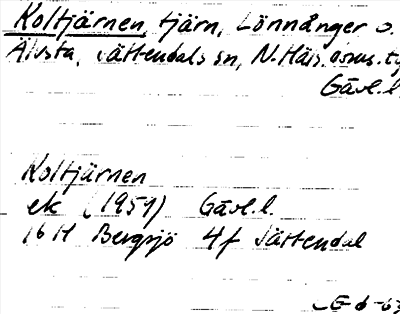 Koltjärnen, tjärn, Lönnånger o.
Älvsta, Jättendals sn, N. Häls. doms. t
Gävl. l.
Koltjärnen
ek (1959) Gävl. l.
16 H Bergsjö 4f Jättendal